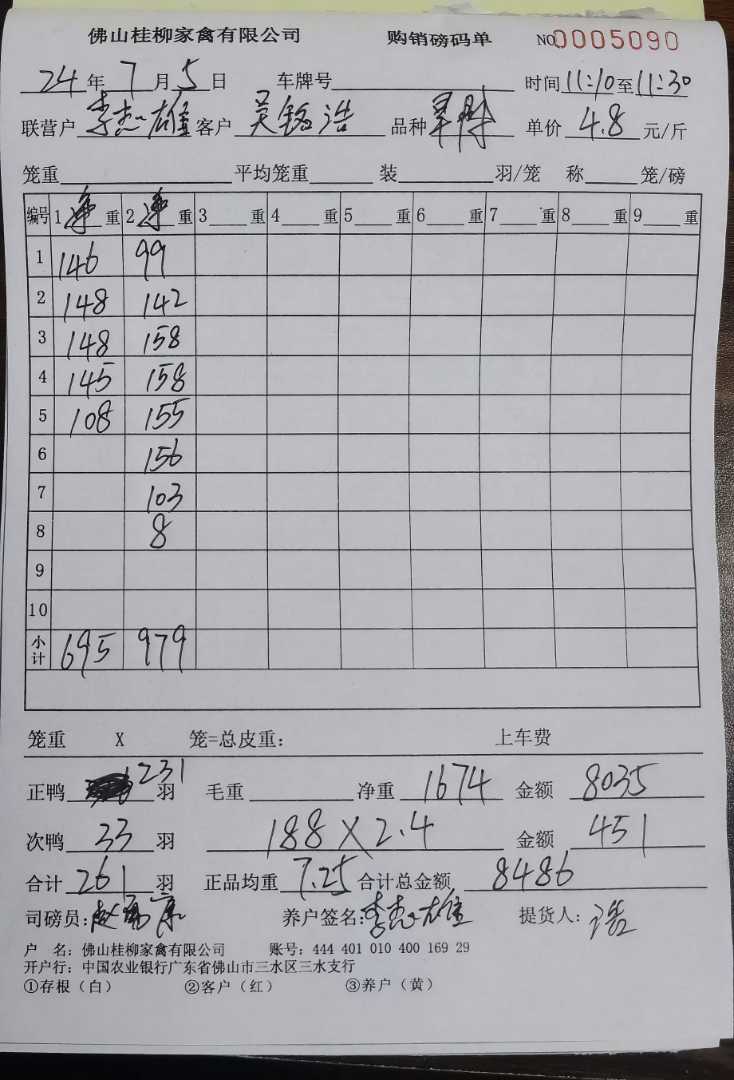 佛山桂柳家禽有限公司 购销磅码单 NO.0005090
24年7月5日 车牌号 时间11:10至11:30
联营户李杰雄客户吴铭浩 品种 单价4.8元/斤
笼重 平均笼重 装 羽/笼 称 笼/磅
编号 1净重 2净重 3 重 4 重 5 重 6 重 7 重 8 重 9 重
1 146 99
2 148 142
3 148 158
4 145 158
5 108 155
6 156
7 103
8 8
9
10
小计 695 979
笼重 X 笼=总皮重: 上车费
正鸭 231羽 毛重 净重 1674 金额 8035
次鸭 33羽 188X2.4 金额 451
合计 261羽 正品均重 7.25 合计总金额 8486
司磅员: 养户签名:李杰雄 提货人:浩
户 名: 佛山桂柳家禽有限公司 账号: 444 401 010 400 169 29
开户行: 中国农业银行广东省佛山市三水区三水支行
①存根(白) ②客户(红) ③养户(黄)